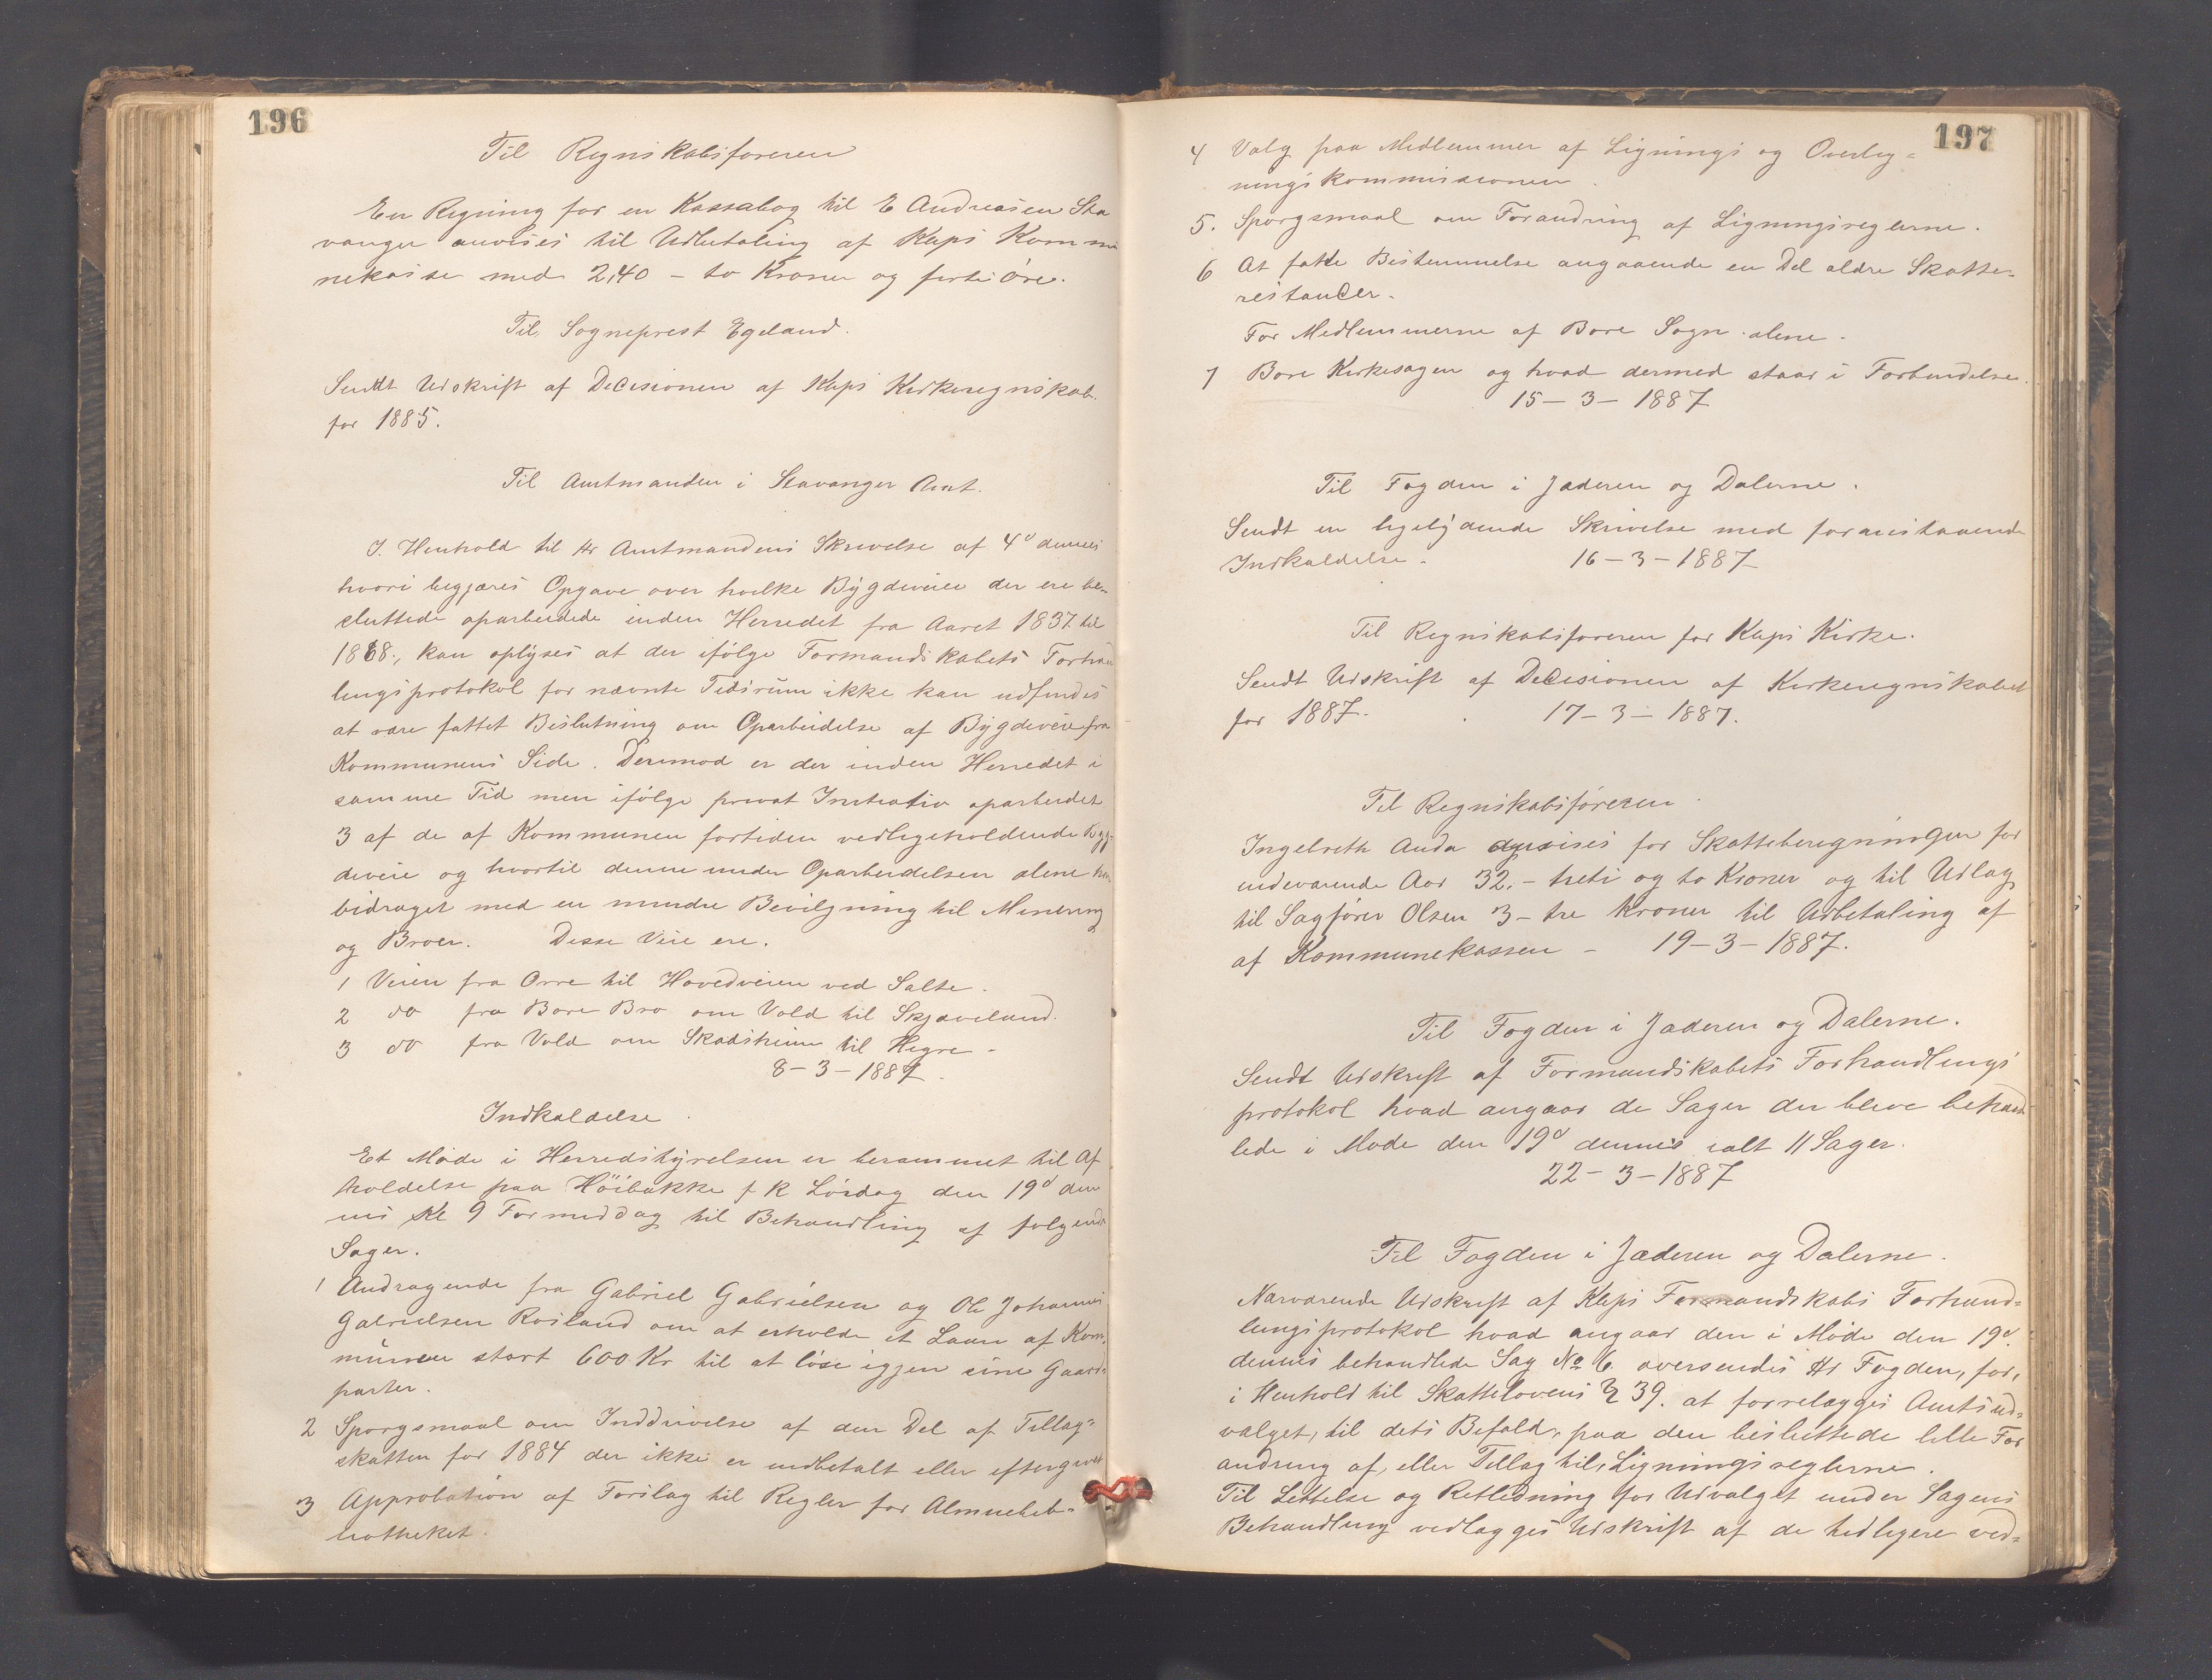 196
Til Regnskabsføreren
En Regning for en Kassabog til E Andreasen Sta
vanger anvises til Udbetaling af Kleps Kommu
nekasse med 2,40 – to Kroner og førti Øre.
Til Sogneprest Egeland.
Sendt Udskrift af Decisionen af Kleps Kirkeregnskab
for 1885.
Til Amtmanden i Stavanger Amt.
I. Henhold til Hr Amtmandens Skrivelse af 4d dennes
hvori begjæres Opgave over hvilke Bygdeveie der ere be-
sluttede oparbeidede inden Herredet fra Aaret 1837 til
1868., kan oplyses at der ifølge Formandskabets Forhand
lingsprotokol for nævnte Tidsrum ikke kan udfindes
at være fattet Beslutning om Oparbeidelse af Bygdeveie fra
Kommunens Side. Derimod er der inden Herredet i
samme Tid men ifølge privat Initiativ oparbeidet
3 af de af Kommunen fortiden vedligeholdende Byg-
deveie og hvortil denne under Oparbeidelsen alene har
bidraget med en mindre Bevilgning til Minering
og Broer. Disse Veie ere.
1 Veien fra Orre til Hovedveien ved Salte.
2 do fra Bore Bro om Vold til Skjæveland.
3 do fra Vold om Skadsheim til Hegre –
8–3–1887.
Indkaldelse
Et Møde i Herredstyrelsen er berammet til Af
holdelse paa Höibakke f k Lørdag den 19d den
nes Kl 9 Formiddag til Behandling af følgende
Sager.
1 Andragende fra Gabriel Gabrielsen og Ole Johannes
Gabrielsen Rosland om at erholde et Laan af Kom-
munen stort 600 Kr til at løse igjen sine Gaards-
parter.
2 Sporgsmaal om Inddrivelse af den Del af Tillæg-
skatten for 1884 der ikke er indbetalt eller eftergivet
3 Approbation af Forslag til Regler for Almuebib-
liotheket.
197
4 Valg paa Medlemmer af Lignings og Overlig-
ningskommissionen.
5. Sporgsmaal om Forandring af Ligningsreglerne.
6 At fatte Bestemmelse angaaende en Del ældre Skatte-
restancer.
For Medlemmerne af Bore Sogn alene.
7 Bore Kirkesagen og hvad dermed staar i Forbindelse.
15–3–1887
Til Fogden i Jæderen og Dalerne.
Sendt en ligelydende Skrivelse med foranstaaende
Indkaldelse. 16–3–1887
Til Regnskabsføreren for Kleps Kirke.
Sendt Udskrift af Decisionen af Kirkeregnskabet
for 1887. 17–3–1887.
Til Regnskabsføreren
Ingebreth Anda anvises for Skatteberegningen for
indeværende Aar 32. – treti og to Kroner og til Udlæg
til Sagfører Olsen 3 – tre Kroner til Udbetaling af
af Kommunekassen – 19–3–1887.
Til Fogden i Jæderen og Dalerne.
Sendt Udskrift af Formandskabets Forhandlings
protokol hvad angaar de Sager der bleve behand
lede i Møde den 19d dennes ialt 11 Sager.
22–3–1887
Til Fogden i Jæderen og Dalerne.
Nærværende Udskrift af Kleps Formandskabs Forhand-
lingsprotokol hvad angaar den i Møde den 19d.
dennes behandlede Sag No 6. oversendes Hr Fogden, for,
i Henhold til Skattelovens § 39. at forrelægges Amtsud-
valget, til dets Bifald, paa den besluttede lille For
andring af, eller Tillæg til, Ligningsreglerne.
Til Lettelse og Retledning for Udvalget under Sagens
Behandling vedlægges Udskrift af de tidligere ved-